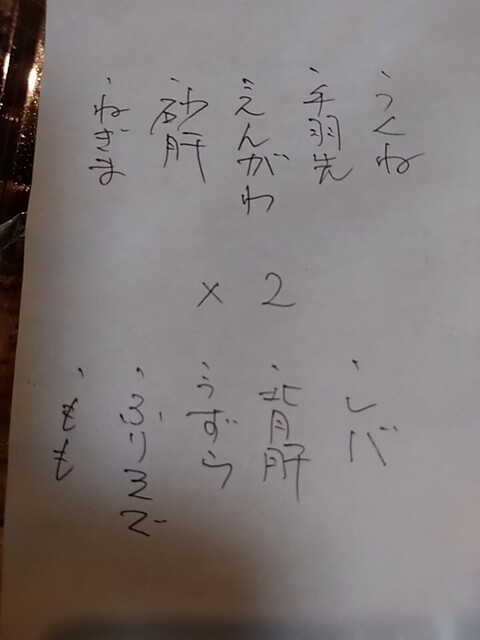 ・つくね
・手羽先
・えんがわ
・砂肝
・ねぎま
×2
・レバ
・背肝
・うずら
・ふりそで
・もも